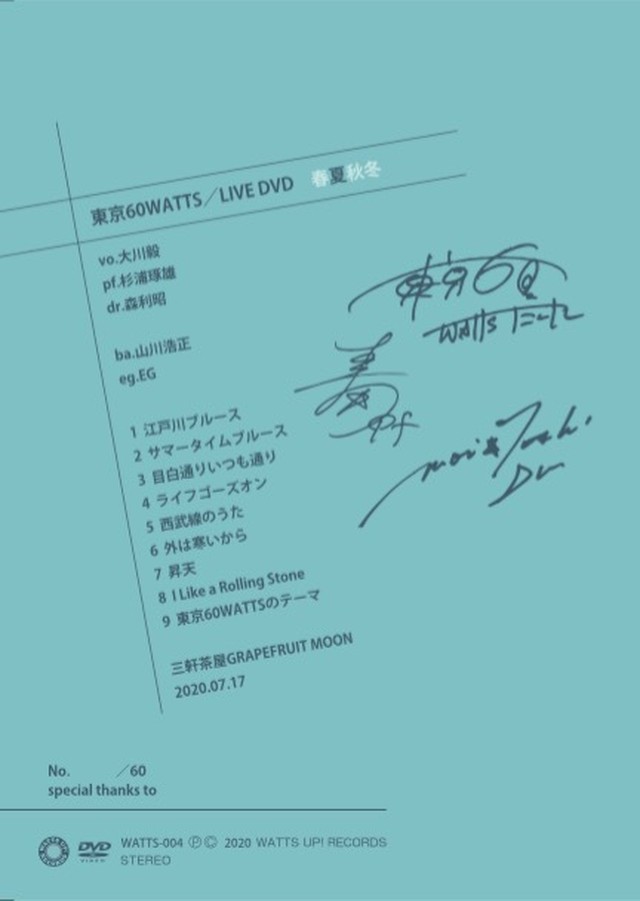 東京60WATTS／LIVE DVD 春夏秋冬
vo.大川毅
pf.杉浦琢雄
dr.森利昭
ba.山川浩正
eg.EG
1 江戸川ブルース
2 サマータイムブルース
3 目白通りいつも通り
4 ライフゴーズオン
5 西武線のうた
6 外は寒いから
7 昇天
8 I Like a Rolling Stone
9 東京60WATTSのテーマ
三軒茶屋GRAPEFRUIT MOON
2020.07.17
東京60
WATTS
Pf
Dr
No. ／60
special thanks to
DVD
VIDEO
WATTS-004 ℗© 2020 WATTS UP! RECORDS
STEREO